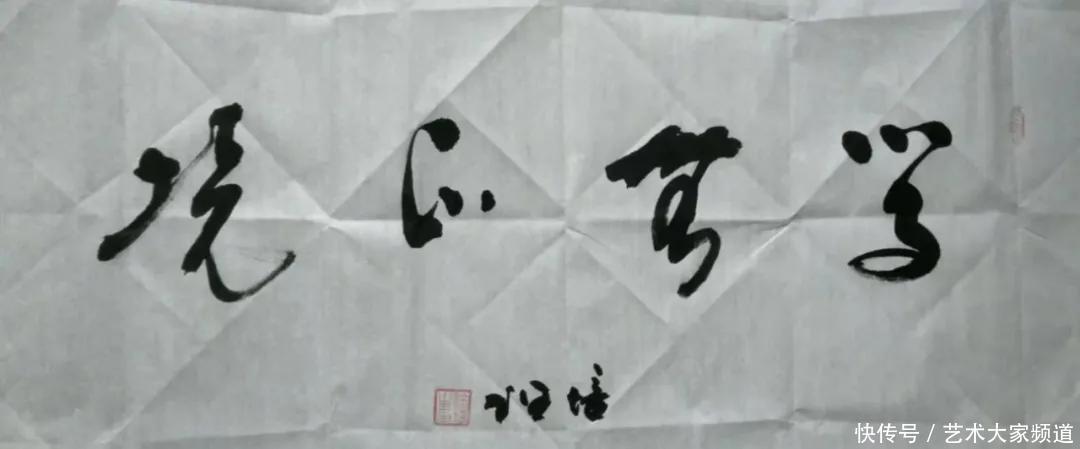 学无止境
快传号 / 艺术大家频道